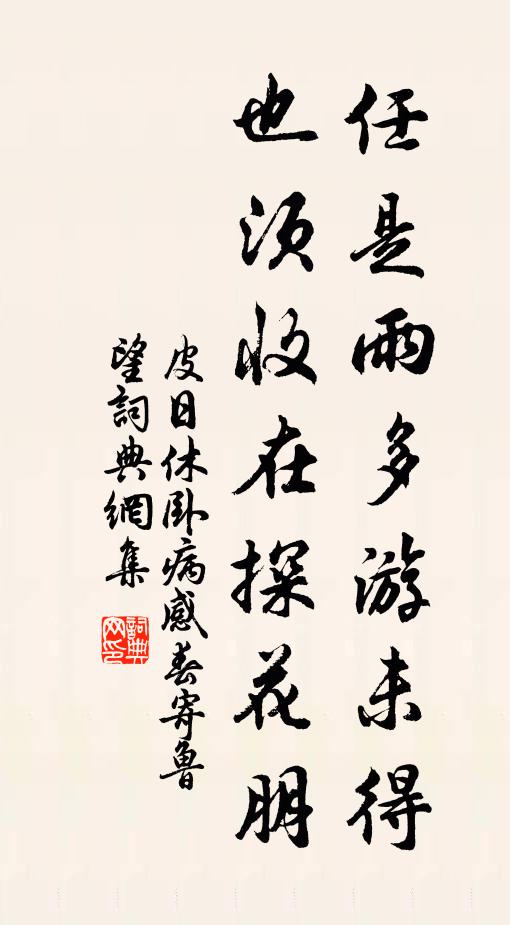 任是雨多游未得
也須收在探花朋
皮日休卧病感春寄魯
望詞典網集
詞典
网印